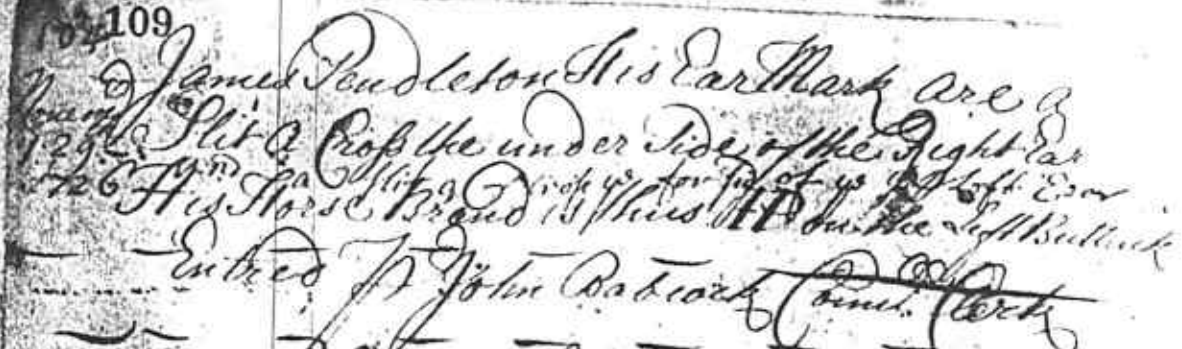 109
James Pendleton His Ear Mark are a
Slit a Cross the under Side of the Right Ear
and a Slit a Cross ye fore Sid of ye Left Ear
1726 His Horse Brand is thus on the Left Buttock
Entred Pr John Babcock Clerk